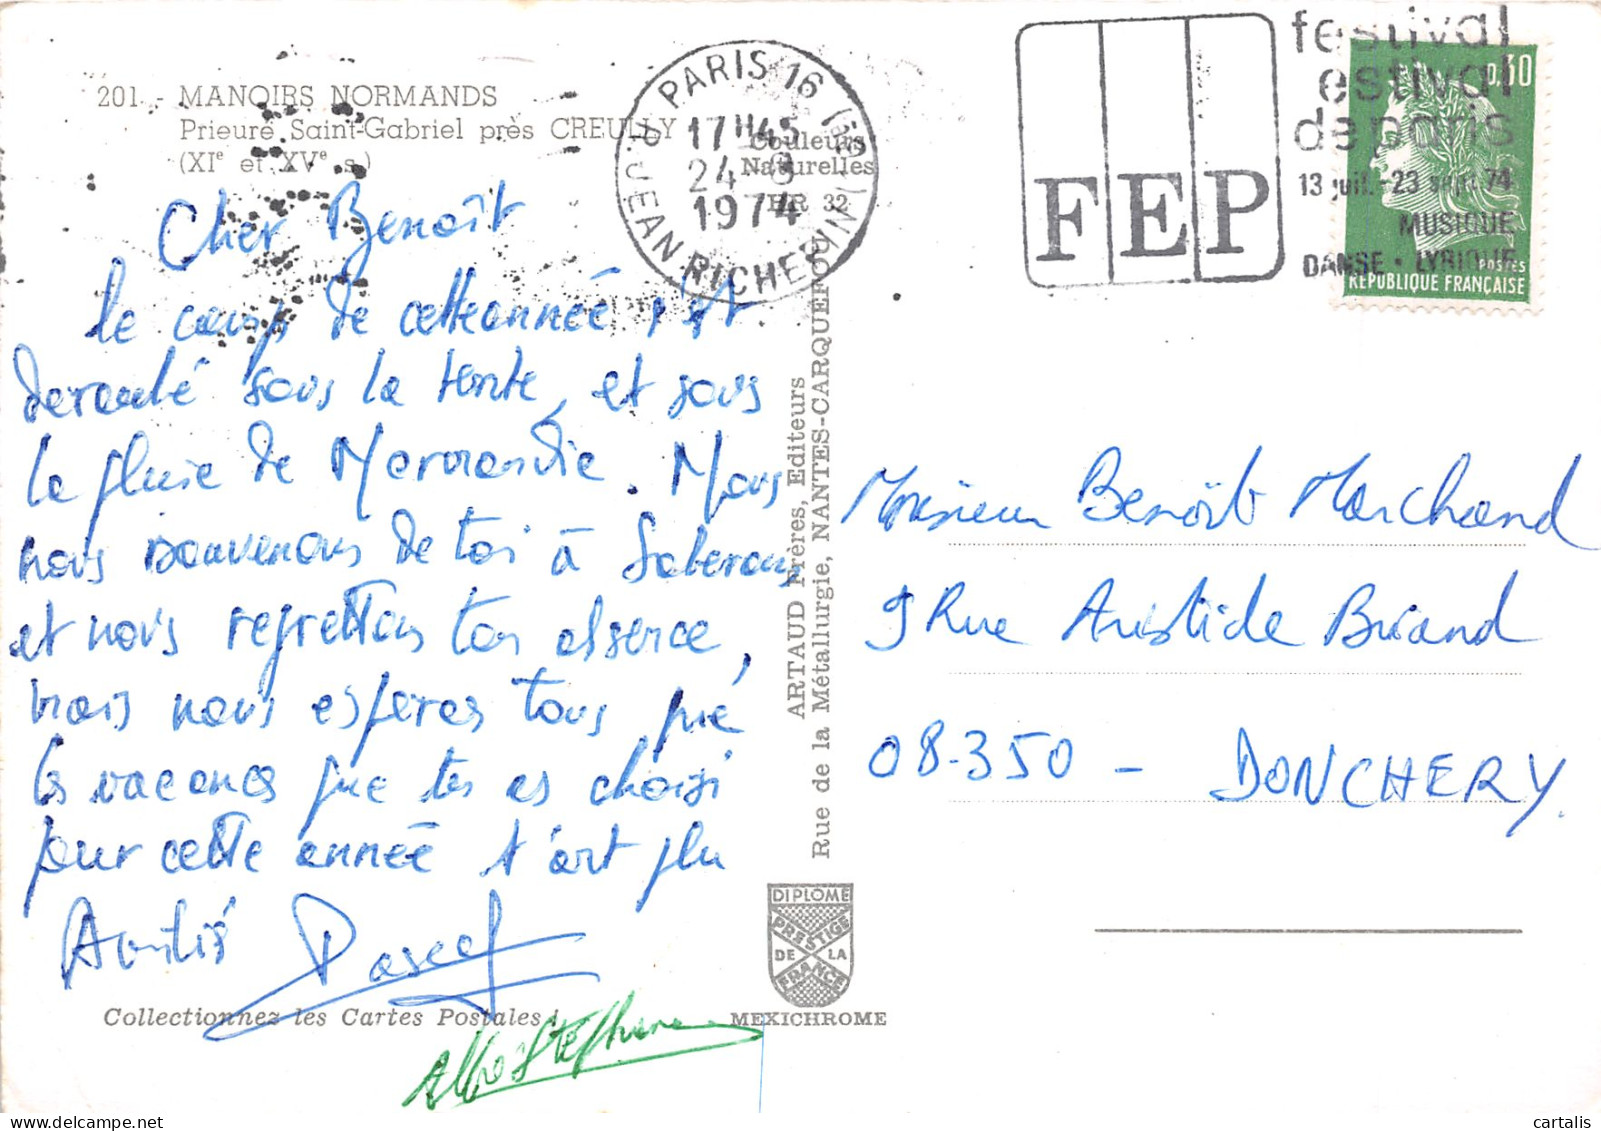 201. - MANOIRS NORMANDS
Prieuré Saint-Gabriel près CREULLY
(XIe et XVe s.)
Couleurs
Naturelles
HR 32
PARIS 16
R. JEAN RICHEPIN
17H45
1974
FEP
festival
estival
de paris
13 juil.-23 sept 74
MUSIQUE
DANSE - LYRIQUE
0.30
POSTES
REPUBLIQUE FRANÇAISE
Cher Benoît
le camp de cette année s'est
deroulé sous la tente, et sous
la pluie de Normandie. Nous
nous souvenons de toi à
et nous regrettons ton absence,
mais nous esperons tous que
les vacances que tu as choisi
pour cette année t'ont plu
Amitiés
Pascal
Stéphane
Monsieur Benoît Marchand
9 Rue Aristide Briand
08-350 - DONCHERY
ARTAUD Frères, Editeurs
Rue de la Métallurgie, NANTES-CARQUEFOU
DIPLOME
PRESTIGE
DE LA
FRANCE
MEXICHROME
Collectionnez les Cartes Postales !
cartalis